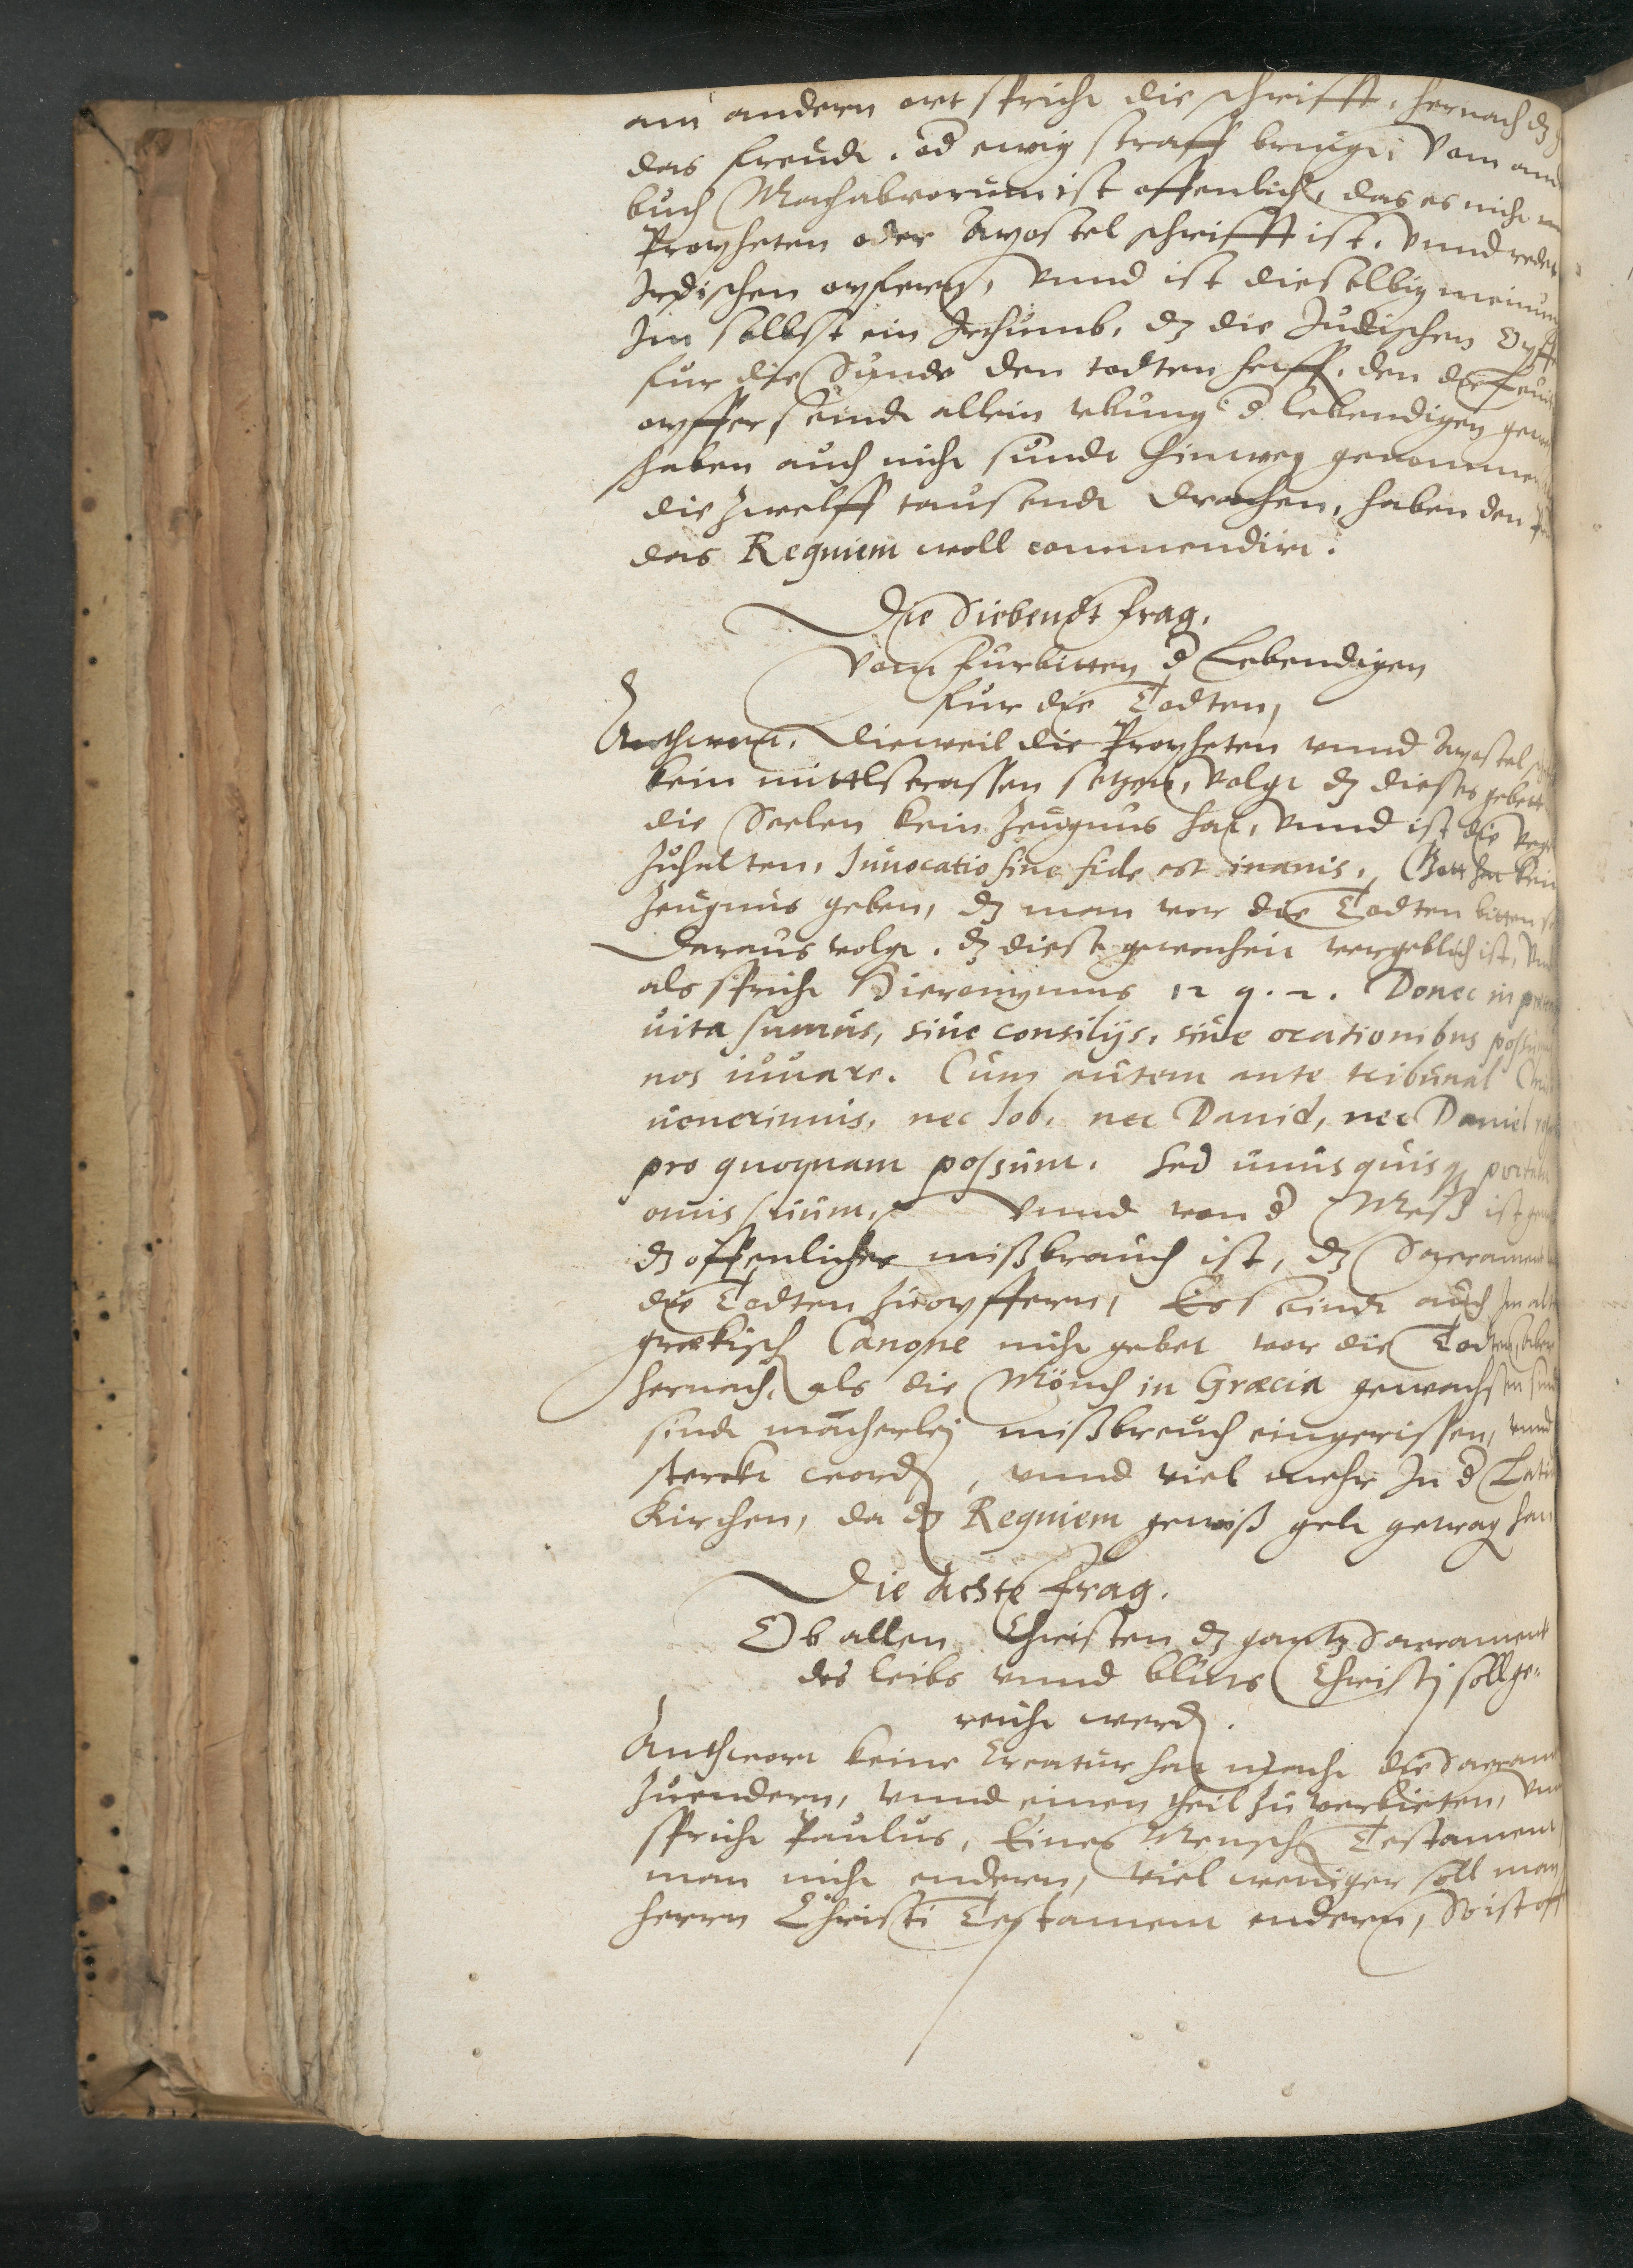 am andern ort spricht die schrifft, hernach dz
das freudt, od ewig straff bringt, Vom and
buch Machabeorum ist offenlich, das es nicht
Propheten oder Apostel schrifft ist, vnnd redet
Irdischen opfern, vnnd ist dieselbig meinung
Im selbst ein Irthumb, dz die Judischen Opff
fur die Sunde den todten helff, den die
opffer seindt allein vbung d lebendigen gew
haben auch nicht sundt hinweg genommen
die zwelff tausendt drachen, haben den
das Requiem woll commendirt.
Die Siebendt frag.
Vom furbitten d Lebendigen
fur die Todten,
Anthwort. Dieweil die Propheten vnnd Apostel
kein mittlstrassen setzen, volgt dz dieses gebett
die Seelen kein Zeugnus hat, vnnd ist die
Zuhalten, Inuocatio sine fide est inanis, Gott hat kein
Zeugnus geben, dz man vor die Todten bitten
Daraus volgt, dz diese gewonheit vergeblich ist, vnd
als spricht Hieronymus 12 q. 2. Donec in
uita sumus, siue consilijs, siue orationibus possumus
nos iuuare. Cum autem ante tribunal
uenerimus, nec Iob, nec Dauid, nec Daniel
pro quoquam possunt. Sed unusquisq portabit
onus suum. Vnnd von d Meß ist
dz offenlicher mißbrauch ist, dz Sacrament
die Todten zuopffern, Es sindt auch Im alten
grekisch Canone nicht gebet vor die Todten, aber
hernach, als die Mönch in Græcia gewachsen sind
sindt macherlej mißbreuch eingerissen, vnnd
sterckt word, vnnd viel mehr In d Latin
Kirchen, da dz Requiem gewiß gelt getrag hat
Die Achte frag.
Ob allen Christen dz gantz Sacrament
des leibs vnnd bluts Christj soll ge-
reicht werd.
Anthwort keine Creatur hat macht die Sacrament
zuendern, vnnd einen theil zu verbieten, vnd
spricht Paulus, Eines Mensch Testament
man nicht endern, viel weniger soll man
herrn Christi Testament endern, So ist off